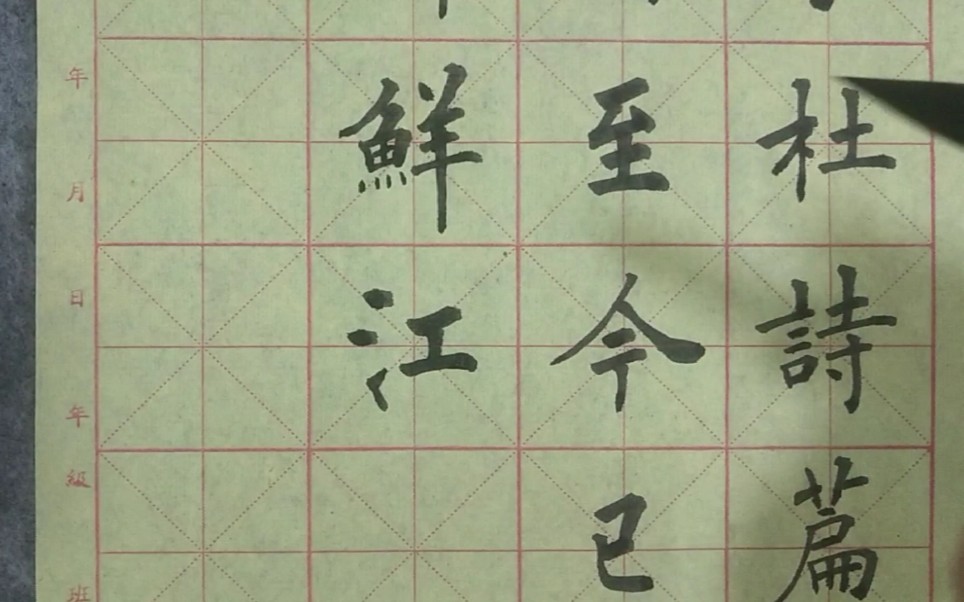 杜詩篇
至今已
鮮江
年月日年級班